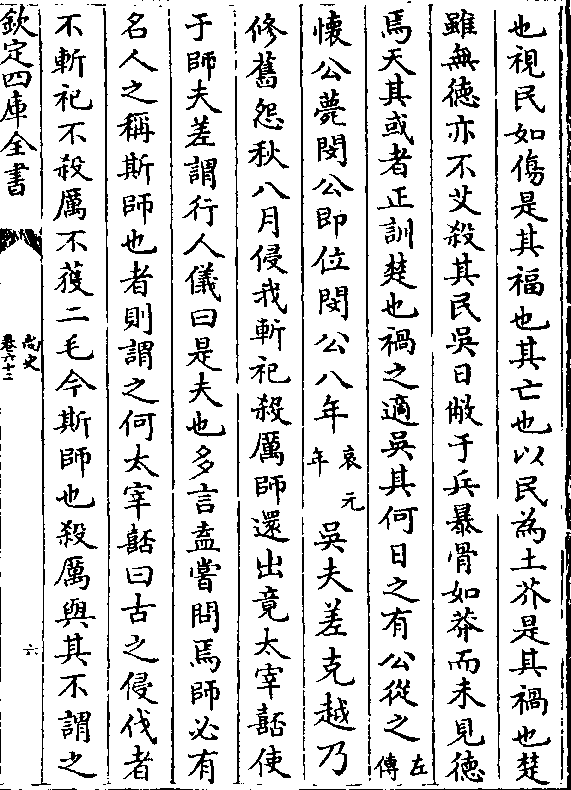 也視民如傷是其福也其亡也以民為土芥是其禍也楚
雖無徳亦不艾殺其民吳日敝于兵暴骨如莽而未見徳
焉天其或者正訓楚也禍之適吳其何日之有公從之左傳
懐公薨閔公即位閔公八年哀元年吳夫差克越乃
修舊怨秋八月侵我斬祀殺厲師還出竟太宰嚭使
于師夫差謂行人儀曰是夫也多言盍嘗問焉師必有
名人之稱斯師也者則謂之何太宰嚭曰古之侵伐者
不斬祀不殺厲不獲二毛今斯師也殺厲與其不謂之
欽定四庫全書
尚史
卷六十三
六